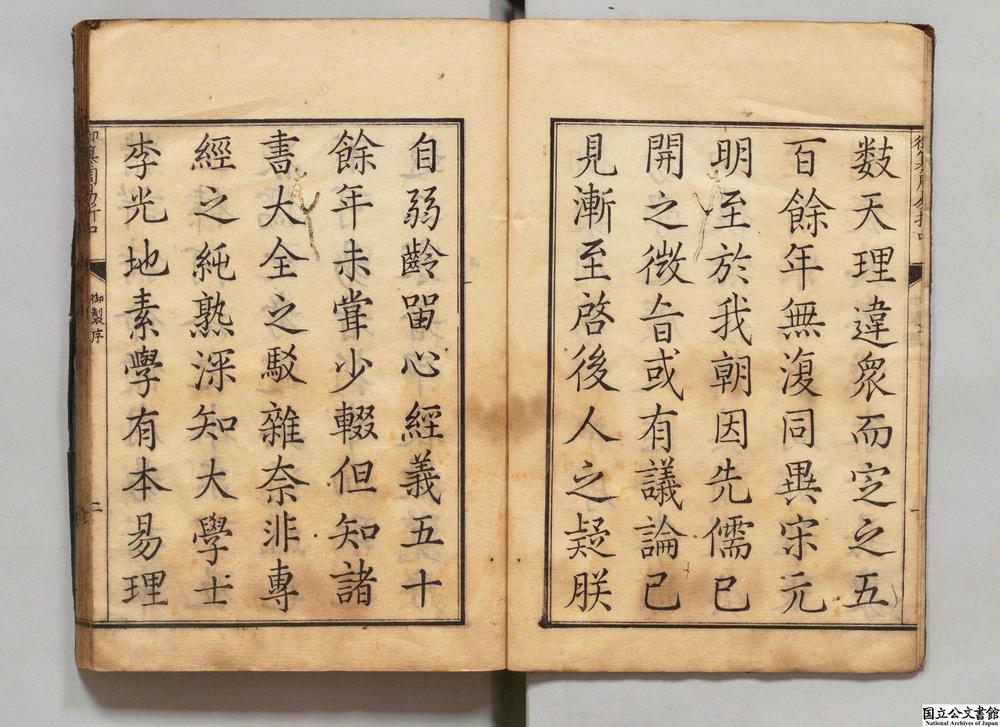 数天理違衆而定之五
百餘年無復同異宋元
明至於我朝因先儒已
開之微旨或有議論已
見漸至啓後人之疑朕
自弱齡留心經義五十
餘年未嘗少輟但知諸
書大全之駁雜奈非專
經之純熟深知大學士
李光地素學有本易理
御製序
二
国立公文書館
National Archives of Japan